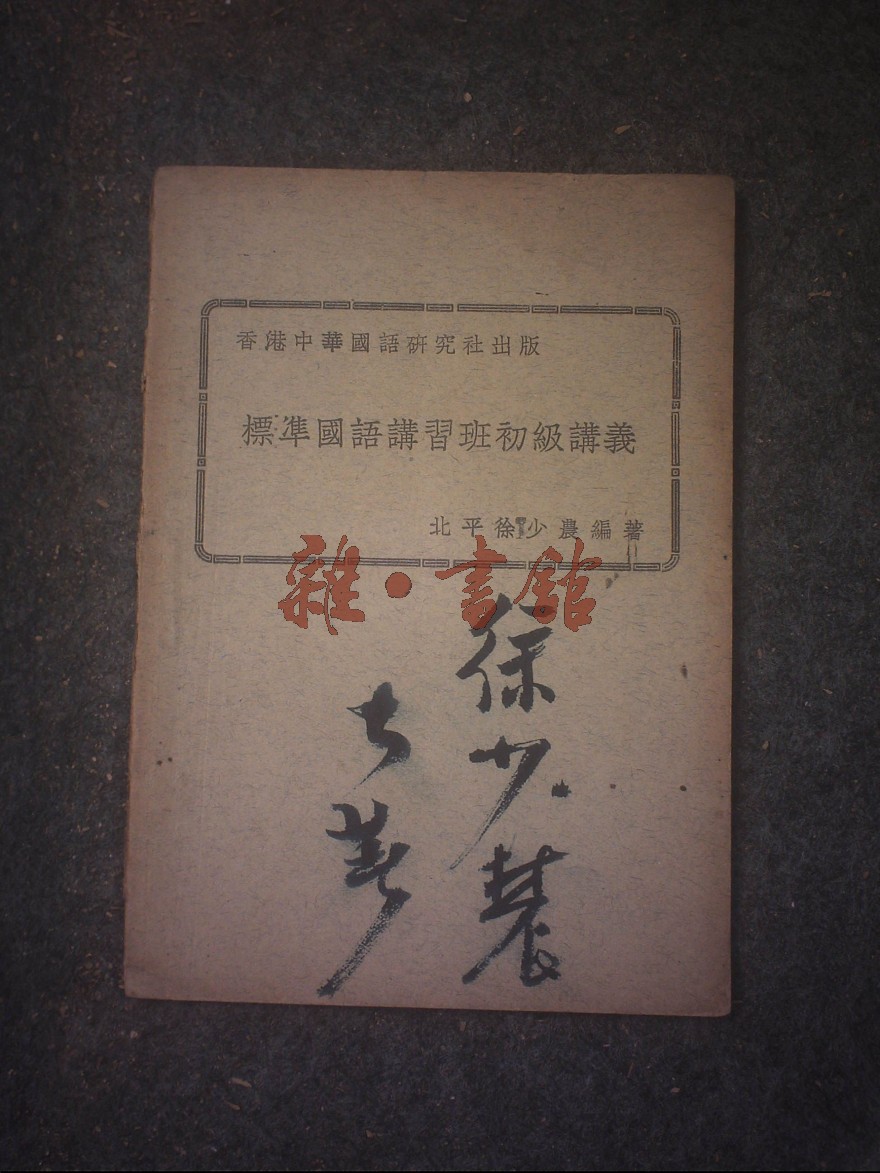 香港中華國語研究社出版
標準國語講習班初級講義
北平徐少農編著
雜·書館
徐少農